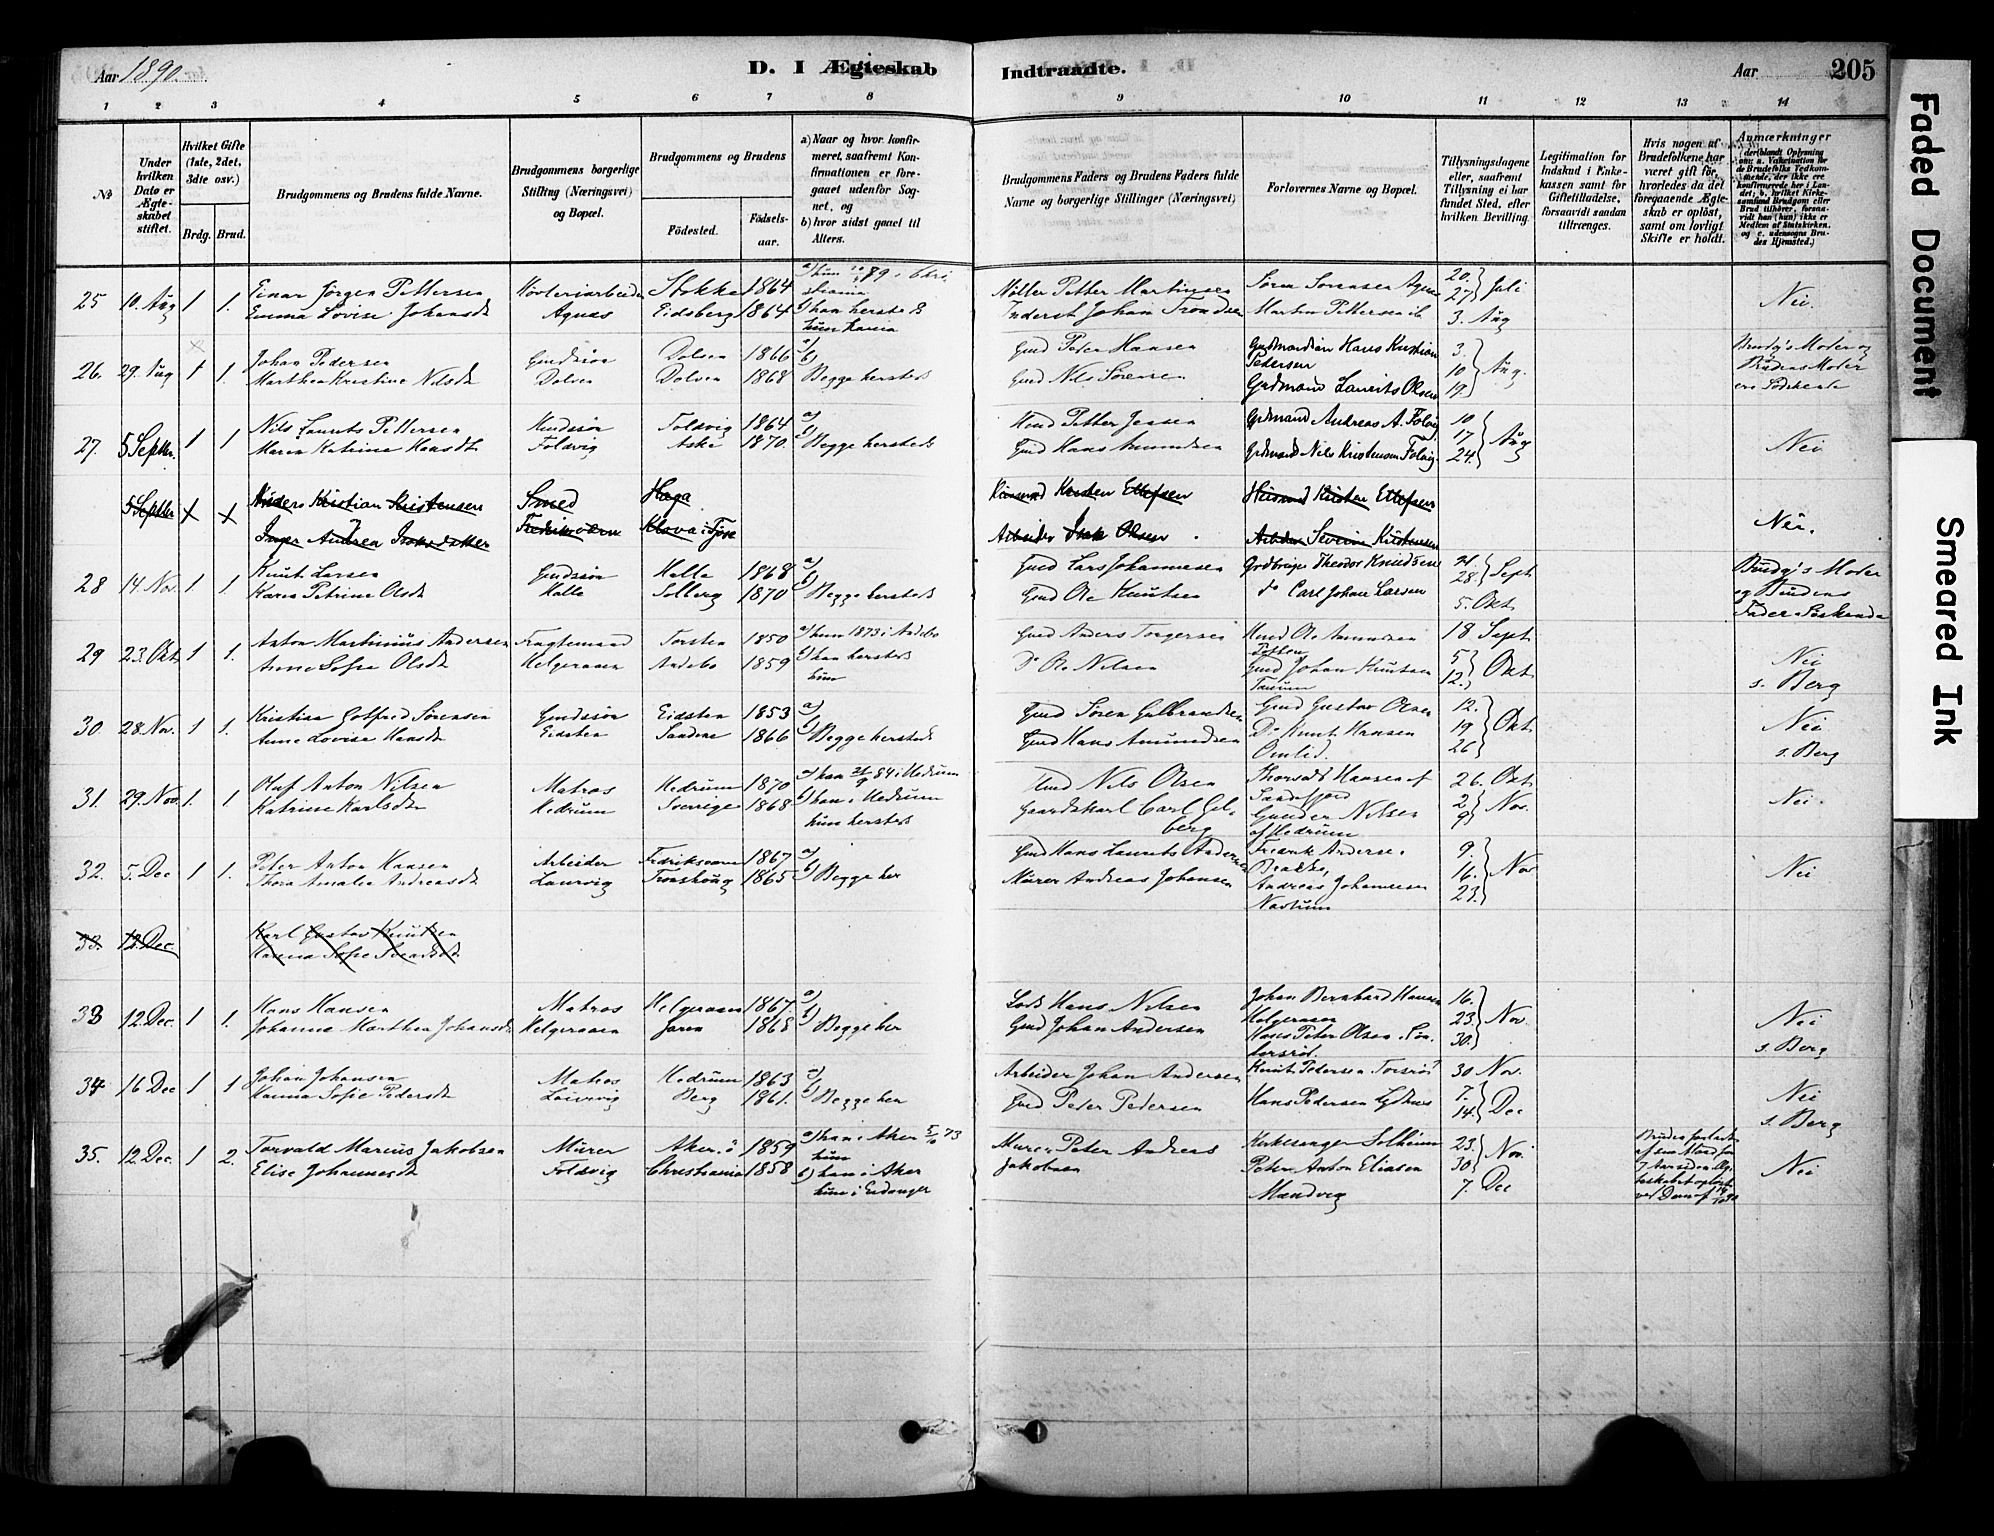 Aar 1890.
D. I Ægteskab Indtraadte.
Aar
205
1 2 3 4 5 6 7 8 9 10 11 12 13 14
No
Under hvilken Dato er Ægteskabet stiftet.
Hvilket Gifte (1ste, 2det, 3die osv.)
Brdg. Brud.
Brudgommens og Brudens fulde Navne.
Brudgommens borgerlige Stilling (Næringsvei) og Bopæl.
Brudgommens og Brudens
Födested.
Födselsaar.
a) Naar og hvor konfirmeret, saafremt Konfirmationen er foregaaet udenfor Sognet, og
b) hvor sidst gaaet til Alters.
Brudgommens Faders og Brudens Faders fulde Navne og borgerlige Stillinger (Næringsvei)
Forlovernes Navne og Bopæl.
Tillysningsdagene eller, saafremt Tillysning ei har fundet Sted, efter hvilken Bevilling.
Legitimation for Indskud i Enkekassen samt for Giftetilladelse, forsaavidt saadan tiltrænges.
Hvis nogen af Brudefolkene har været gift för, hvorledes da det foregaaende Ægteskab er oplöst, samt om lovligt Skifte er holdt.
Anmærkninger (deriblandt Oplysning om: a. Vaksination for de Brudefolks Vedkommende, der ikke ere konfirmerede her i Landet; b. hvilket Kirkesamfund Brudgom eller Brud tilhörer, forsaavidt han (hun) ikke er Medlem af Statskirken, og c. udensogns Brudes Hjemsted.)
25 10. Aug 1 1. Einar Jörgen Pettersen Høvleriarbeider Stokke 1864 a) hun 89 i Christiania Møller Petter Martinsen Sören Sörensen Agnes 20. 27 Juli
Emma Lovise Johansdt Agnæs Eidsberg 1864 b) han hersteds hun Inderst Johan Trondsen Martin Pettersen ib. 3. Aug Nei.
26. 29. Aug 1 1. Johan Pedersen Gmdssøn Dolven 1866 a) b) Gmd Peder Hansen Grdmandssøn Hans Kristian Pedersen 3. 10 Aug. Brudg's Moder og Brudens Moder ere Södskende
Marthea Kristine Nilsdt Dolven 1868 Begge hersteds Gmd Nils Sørensen Grdmand Laurits Olsen 19.
27. 5 Septbr. 1 1 Nils Laurits Pettersen Hmdssøn Foldvig 1864 a) Hmd Petter Jensen Grdmand Andreas A. Folvig 10 17 Aug
Maren Katrine Hansdt Foldvig Aske 1870. b) Begge hersteds Gmd Hans Amundsen Grdmand Nils Kristensen Folvig 24. Nei
5 Septbr x x Anders Kristian Kristensen Smed Haga Husmand Kristen Ellefsen Husmand Kristen Ellefsen
Inger Andrea Isaksdatter Fredriksværn Klova i Tjøse Arbeider Isak Olsen Arbeider Severin Kristensen Nei.
28 14 Nov. 1 1. Knut Larsen Gmdssøn Halle 1868 a) Gmd Lars Johannesen Grdbruger Theodor Knudsen 21. 28. Sept Brudg's Moder og Brudens Fader Søskende
Karen Petrine Olsdt Halle Solberg 1870 b) Begge hersteds Gmd Ole Knutsen do Carl Johan Larsen 5. Okt.
29 23 Okt 1 1. Anton Martinius Andersen Fragtemand Torsten 1850 a) hun 1873 i Andebo Gmd Anders Torgersen Hmd Ole Amundsen 18 Sept
Anne Sofie Olsdt Helgeraaen Andebo 1859 b) han hersteds hun Do Ole Nilsen Gmd Johan Knutsen 5 12. Okt Nei
s. Berg
30. 28. Nov. 1 1. Kristian Gotfred Sörensen Gmdssøn Eidsten 1853 a) Gmd Sören Gulbrandsen Gmd Gustav Olsen 12. 19 Okt Nei
Anne Lovise Hansdt Eidsten Sandene 1866 b) Begge hersteds Gmd Hans Amundsen Do Knut Hansen Omlid. 26 s. Berg
31. 29. Nov. 1. 1 Oluf Anton Nilsen Matros Hedrum 1870 a) han 21/9 84 i Hedrum Hmd Nils Olsen Thorvald Hansen af Sandefjord 26. Okt
Katrine Karlsdt Hedrum Sverrige 1868 b) han i Hedrum hun hersteds Gaardskarl Carl Gelberg Gunder Nilsen af Hedrum 2 9 Nov. Nei.
32. 5. Dec 1 1. Peter Anton Hansen Arbeider Fredriksværn 1867 a) Gmd Hans Laurits Andersen Fredrik Andersen 9. 16. Nov
Thora Amalie Andreasdt Laurvig Fronshaug 1865 b) Begge her Murer Andreas Johansen Andreas Johannesen 23. Nei
33. 12. Dec. Karl Gustav Knutsen
Hanna Sofie Svendsdt
33 12. Dec. 1 1. Hans Hansen Matros Helgeraaen 1867. a) Lods Hans Nilsen Johan Bernhard Hansen Helgeraaen 16. 23. Nov. Nei
Johanne Marthea Johansdt Helgeraaen Jaren 1868 b) Begge her Gmd Johan Andersen Hans Peter Olsen 30. s. Berg
34 16 Dec 1 1 Johan Johansen Matros Hedrum 1863 a) Arbeider Johan Andersen Knut Petersen Torsröd 30 Nov.
Hanna Sofie Pedersdt Laurvig Berg 1861. b) Begge her Gmd Peter Pedersen Hans Pedersen 7. 14. Dec Nei
s. Berg
35. 12. Dec. 1 2. Torvald Marius Jakobsen Murer Aker. i 1859 a) han i Aker 5/10 73 hun Murer Peter Andreas Jakobsen Kirkesanger Solheim 23. 30 Nov. Bruden forladt af sin Mand for 7 Aar siden Ægteskabet oplöst ved Dom af
Elise Johannesdt Foldvig Christiania 1858 b) han i Aker hun i Eidanger Peter Anton Eliasen Mandvig 7. Dec Nei
Faded Document
Smeared Ink